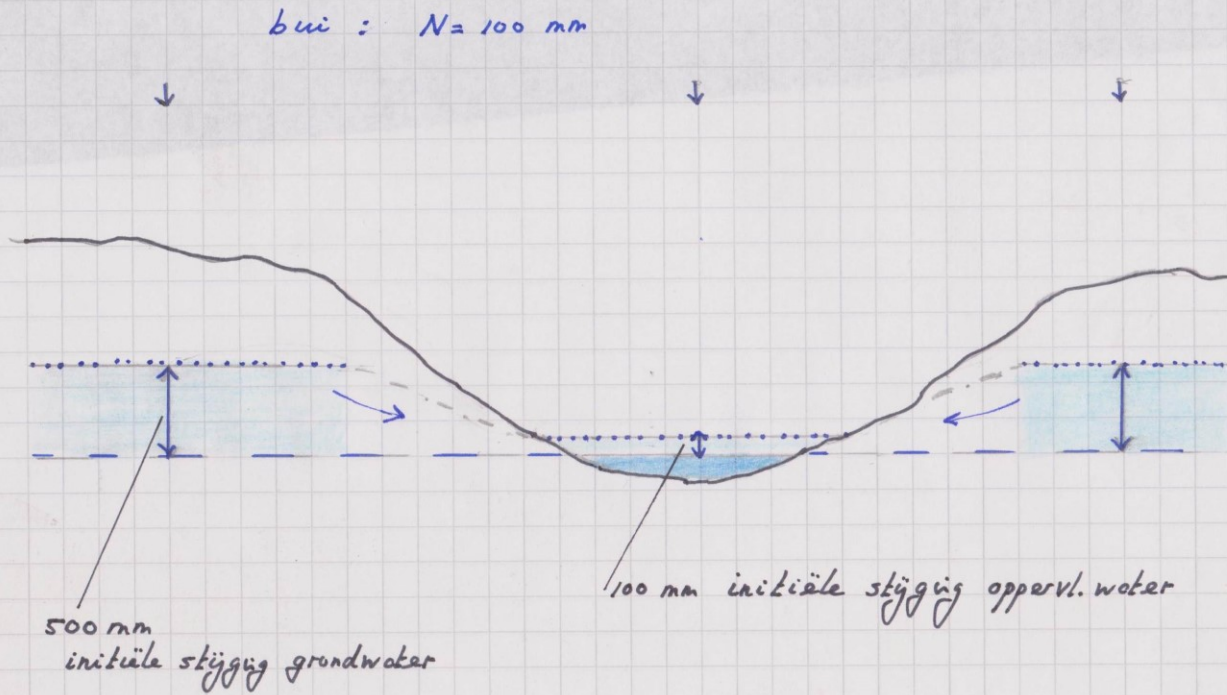 bui : N= 100 mm
100 mm initiële stijging oppervl. water
500 mm
initiële stijging grondwater